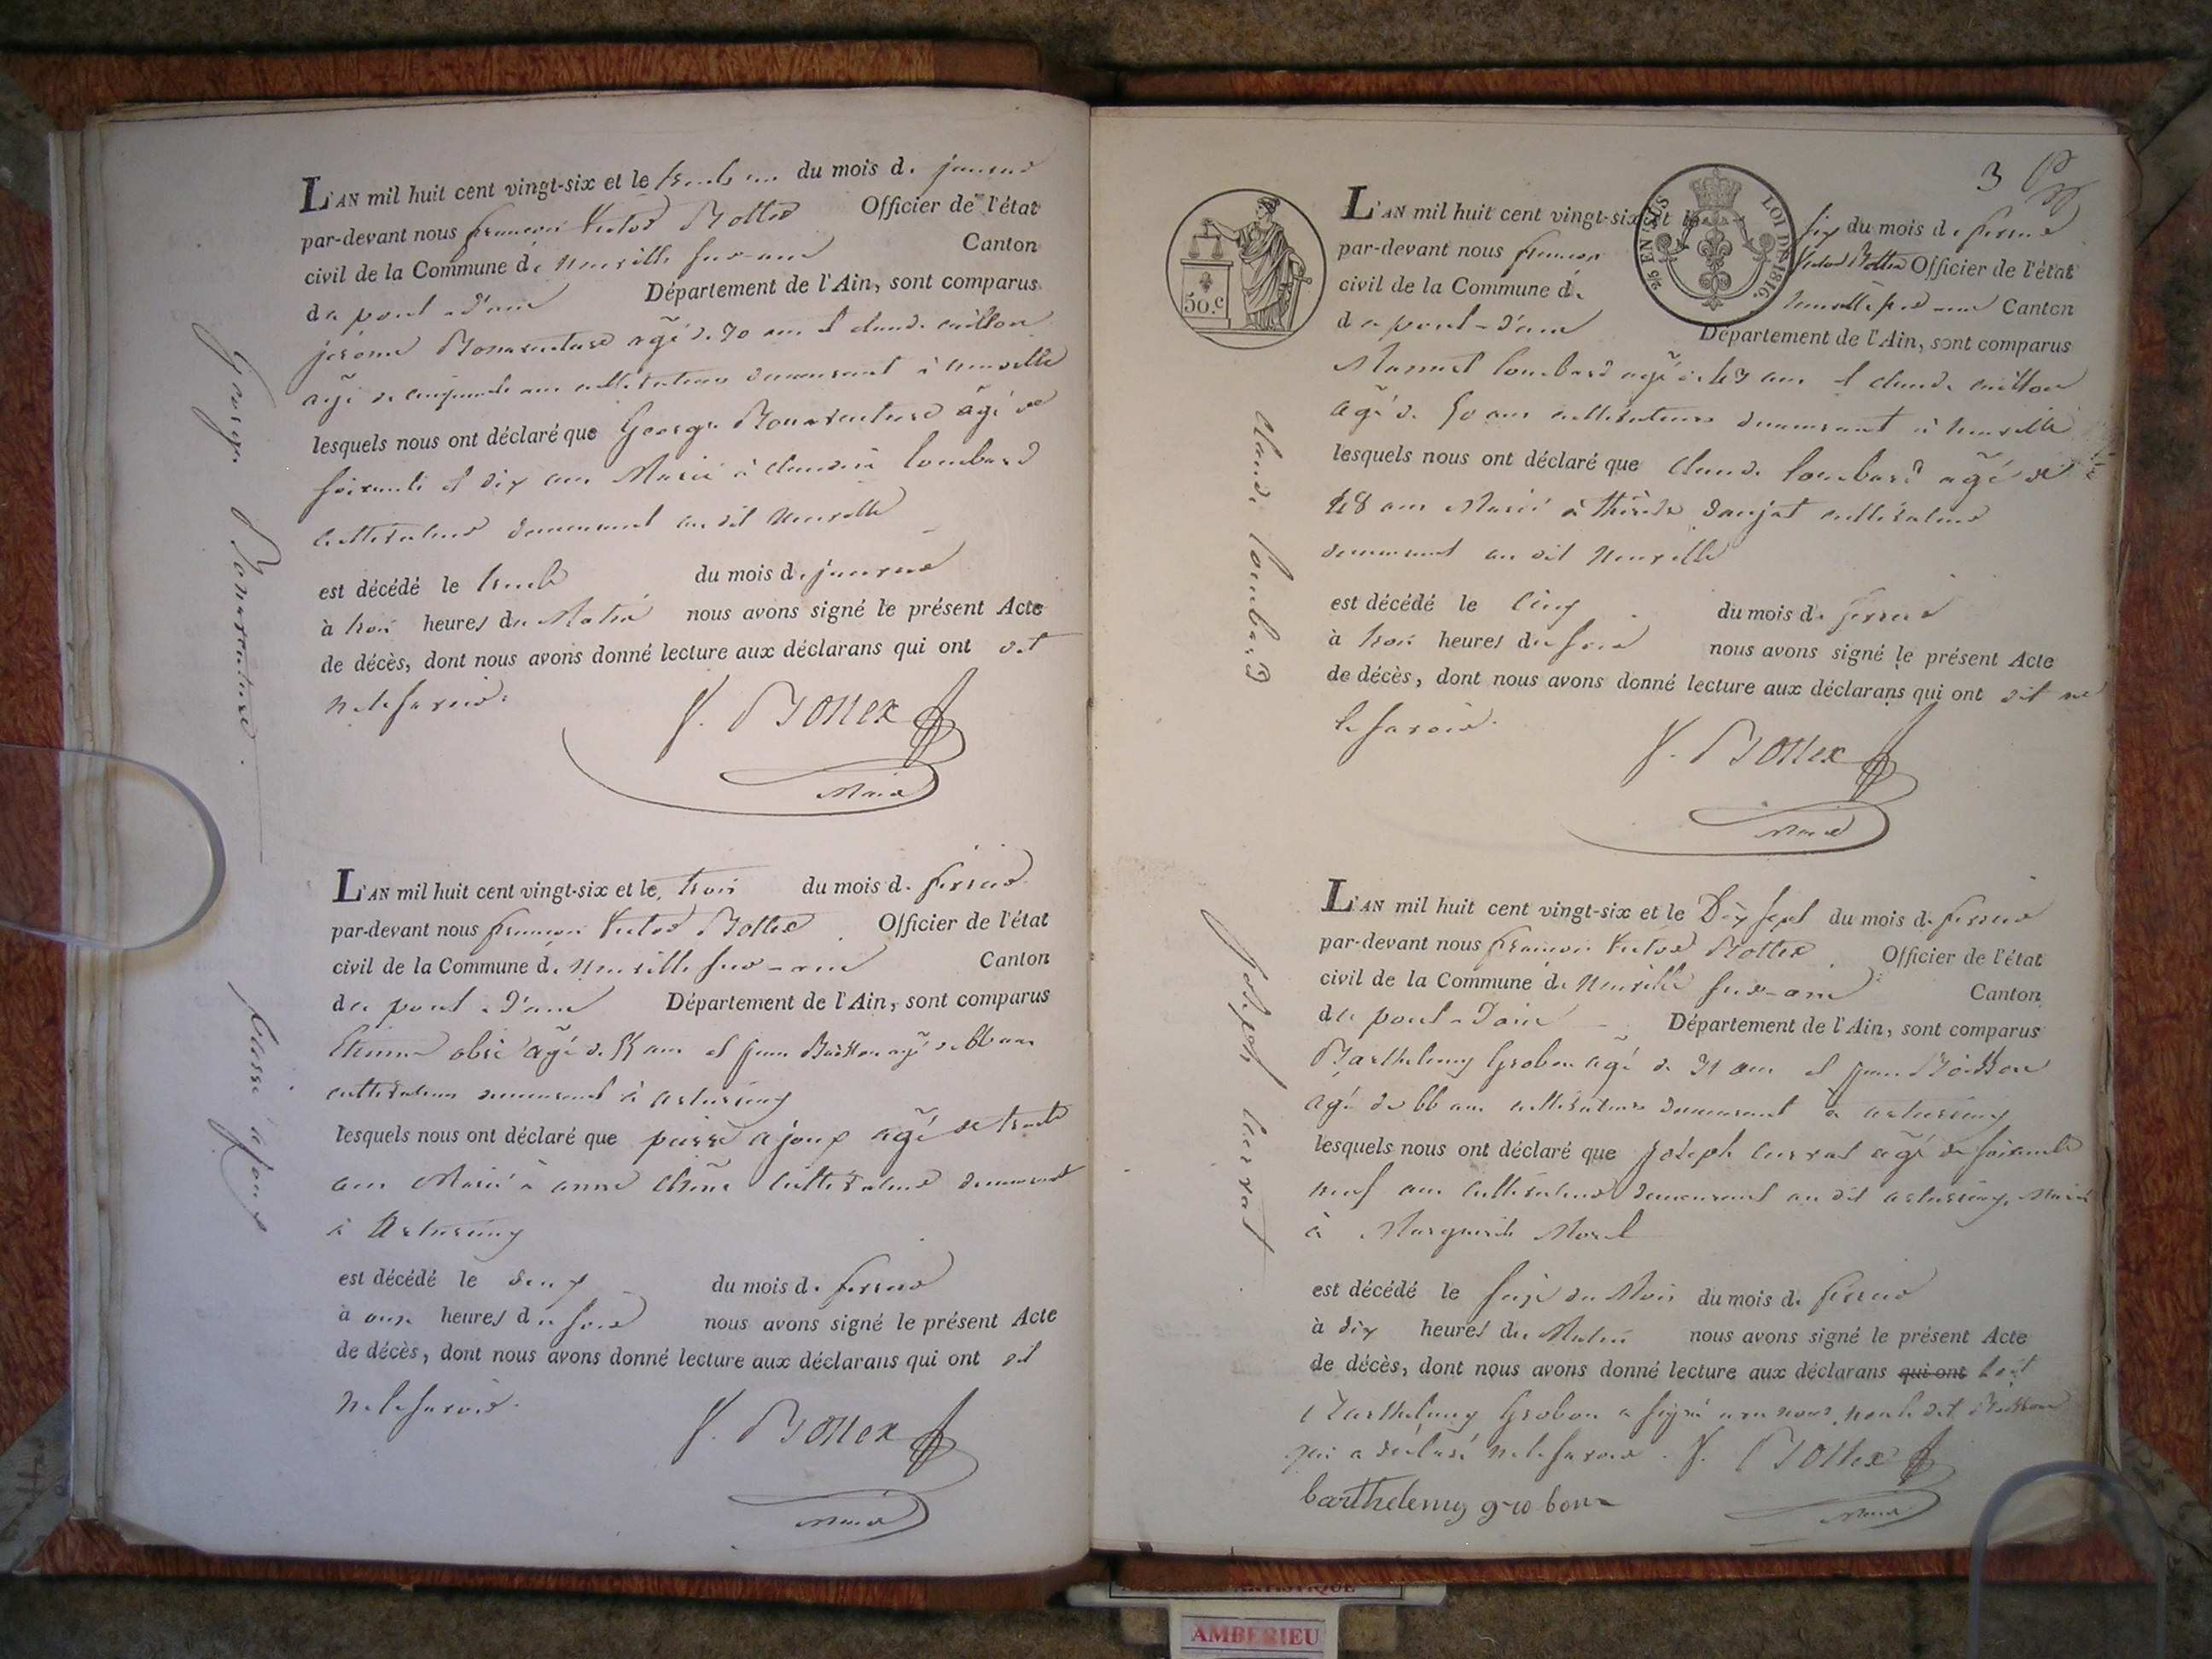 L'AN mil huit cent vingt-six et le trente un du mois de janvier
par-devant nous francois Victor Bottex Officier de l'état
civil de la Commune de neuville sur-ain Canton
de pont-d'ain Département de l'Ain, sont comparus
jérome Bonaventure agé de 70 ans et claude
agé de cinquante ans cultivateurs demeurant à neuville
lesquels nous ont déclaré que George Bonaventure âgé de
soixante et dix ans Marié à claudine lombard
cultivateur demeurant au dit neuville
est décédé le trente du mois de janvier
à trois heures du Matin nous avons signé le présent Acte
de décès, dont nous avons donné lecture aux déclarans qui ont dit
ne le savoir.
V. Bottex
Maire
George Bonaventure.
L'AN mil huit cent vingt-six et le trois du mois de fevrier
par-devant nous francois Victor Bottex Officier de l'état
civil de la Commune de neuville sur-ain Canton
de pont-d'ain Département de l'Ain, sont comparus
Etienne agé de ans et jean Buisson agé de 66 ans
cultivateurs demeurant à
lesquels nous ont déclaré que pierre ajoux agé de trente
ans Marié à anne cultivateur demeurant
à
est décédé le deux du mois de fevrier
à onze heures du soir nous avons signé le présent Acte
de décès, dont nous avons donné lecture aux déclarans qui ont dit
ne le savoir.
V. Bottex
Maire
pierre ajoux
3
50.c
2/5 EN SUS
LOI DE 1816.
L'AN mil huit cent vingt-six et le six du mois de fevrier
par-devant nous francois Victor Bottex Officier de l'état
civil de la Commune de neuville sur-ain Canton
de pont-d'ain Département de l'Ain, sont comparus
lombard agé de 43 ans et claude
agé de 50 ans cultivateurs demeurant à neuville
lesquels nous ont déclaré que claude lombard agé de
48 ans Marié à thérèse cultivateur
demeurant au dit neuville
est décédé le cinq du mois de fevrier
à trois heures du soir nous avons signé le présent Acte
de décès, dont nous avons donné lecture aux déclarans qui ont dit ne
le savoir.
V. Bottex
Maire
Claude lombard
L'AN mil huit cent vingt-six et le Dix sept du mois de fevrier
par-devant nous francois Victor Bottex Officier de l'état
civil de la Commune de neuville sur-ain Canton
de pont-d'ain Département de l'Ain, sont comparus
Barthelemy Grobon agé de 31 ans et jean
agé de 66 ans cultivateurs demeurant à
lesquels nous ont déclaré que joseph currat agé de soixante
neuf ans cultivateur demeurant au dit marié
à Marguerite Morel
est décédé le seize du Mois du mois de fevrier
à dix heures du Matin nous avons signé le présent Acte
de décès, dont nous avons donné lecture aux déclarans qui ont
Barthelemy Grobon a signé avec nous, dit
qui a déclaré ne le savoir. V. Bottex
barthelemy grobon
Maire
joseph currat
AMBERIEU